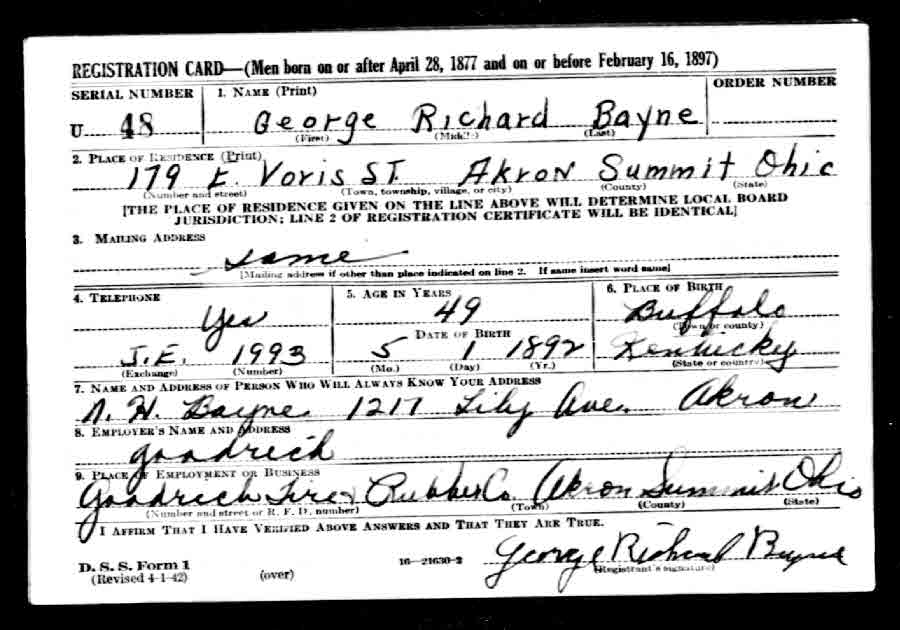 REGISTRATION CARD—(Men born on or after April 28, 1877 and on or before February 16, 1897)
SERIAL NUMBER 1. NAME (Print) ORDER NUMBER
U 48 George Richard Bayne
(First) (Middle) (Last)
2. PLACE OF RESIDENCE (Print)
179 E. Voris ST. Akron Summit Ohio
(Number and street) (Town, township, village, or city) (County) (State)
[THE PLACE OF RESIDENCE GIVEN ON THE LINE ABOVE WILL DETERMINE LOCAL BOARD
JURISDICTION; LINE 2 OF REGISTRATION CERTIFICATE WILL BE IDENTICAL]
3. MAILING ADDRESS
Same
[Mailing address if other than place indicated on line 2. If same insert word same]
4. TELEPHONE 5. AGE IN YEARS 6. PLACE OF BIRTH
Yes 49 Buffalo
DATE OF BIRTH (Town or county)
J.E. 1993 5 1 1892 Kentucky
(Exchange) (Number) (Mo.) (Day) (Yr.) (State or country)
7. NAME AND ADDRESS OF PERSON WHO WILL ALWAYS KNOW YOUR ADDRESS
N. H. Bayne 1217 Lily Ave. Akron
8. EMPLOYER'S NAME AND ADDRESS
Goodrich
9. PLACE OF EMPLOYMENT OR BUSINESS
Goodrich Tire & Rubber Co Akron Summit Ohio
(Number and street or R. F. D. number) (Town) (County) (State)
I AFFIRM THAT I HAVE VERIFIED ABOVE ANSWERS AND THAT THEY ARE TRUE.
George Richard Bayne
D. S. S. Form 1 16—21630-2 (Registrant's signature)
(Revised 4-1-42) (over)